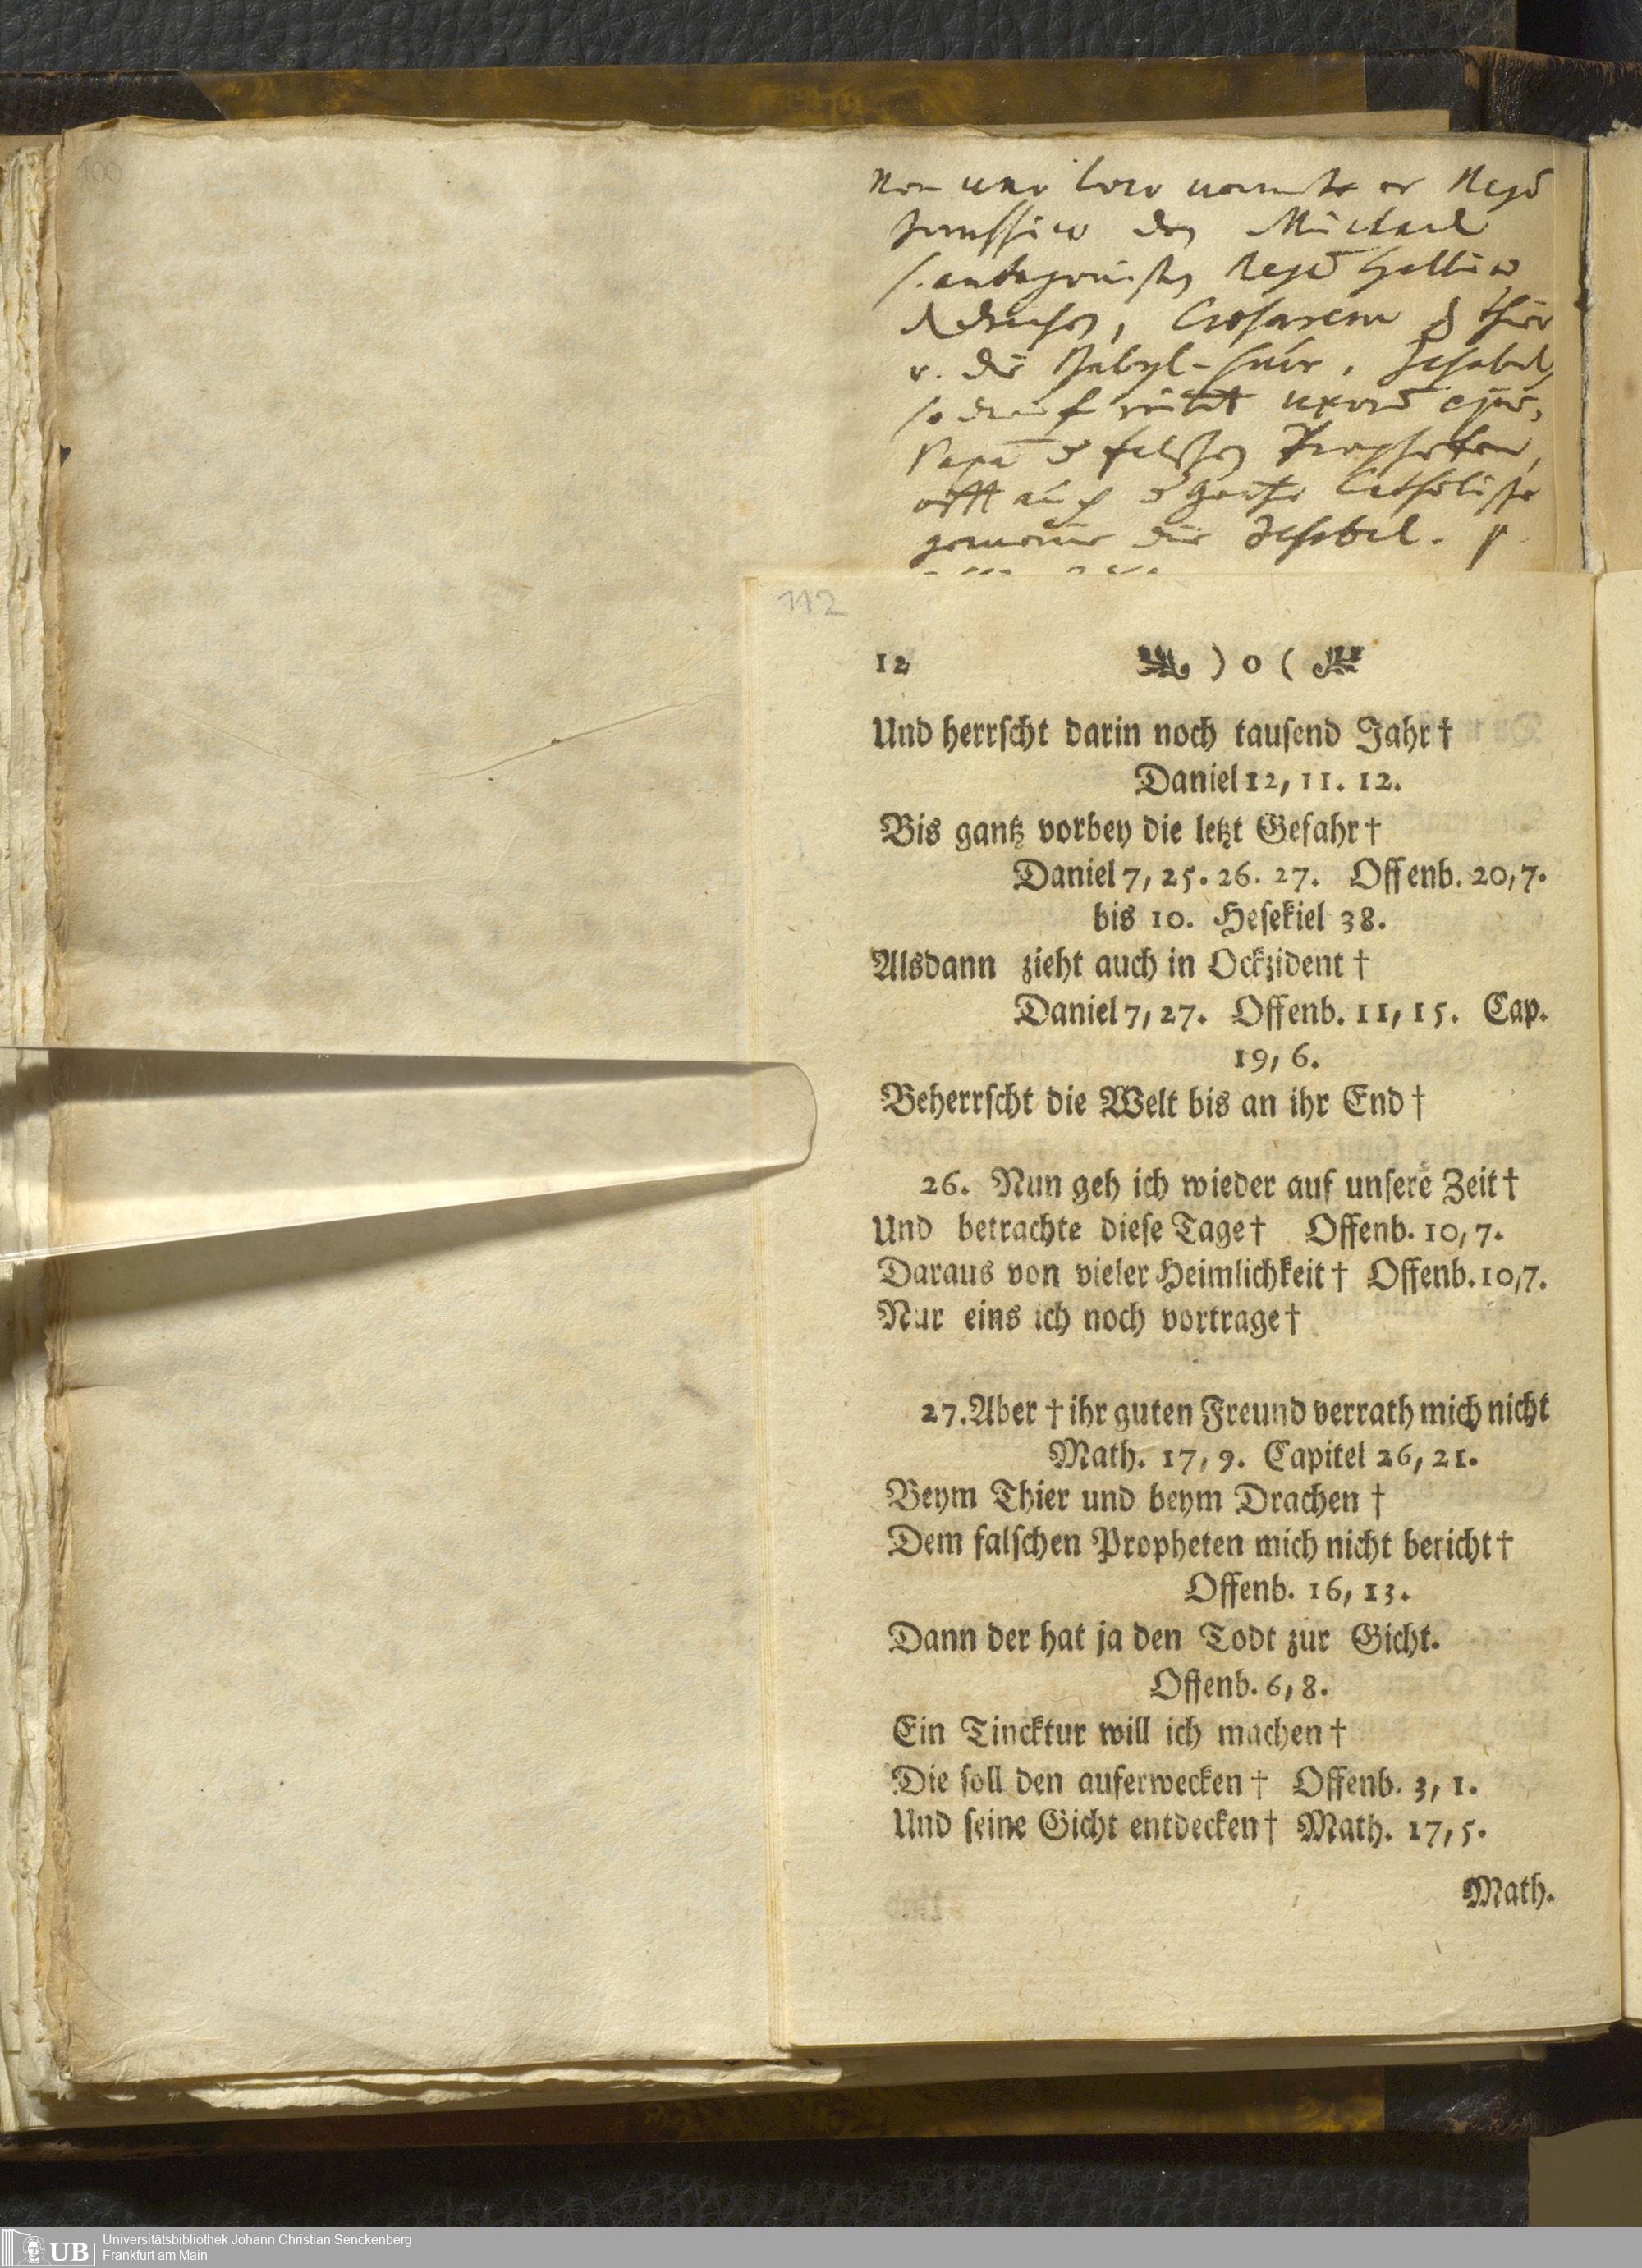 100
Non uno loco nennet er
den Michael
Caesarem
v. die Babyl-hur, Jesabel,
Papa falschen Propheten,
offt auch Catholische
gemeine die Jesabel.
112
12 ) o (
Und herrſcht darin noch tauſend Jahr†
Daniel 12, 11. 12.
Bis gantz vorbey die letzt Gefahr†
Daniel 7, 25. 26. 27. Offenb. 20, 7.
bis 10. Heſekiel 38.
Alsdann zieht auch in Ockzident†
Daniel 7, 27. Offenb. 11, 15. Cap.
19, 6.
Beherrſcht die Welt bis an ihr End†
26. Nun geh ich wieder auf unſere Zeit†
Und betrachte dieſe Tage† Offenb. 10, 7.
Daraus von vieler Heimlichkeit† Offenb. 10, 7.
Nur eins ich noch vortrage†
27. Aber † ihr guten Freund verrath mich nicht
Math. 17, 9. Capitel 26, 21.
Beym Thier und beym Drachen†
Dem falſchen Propheten mich nicht bericht†
Offenb. 16, 13.
Dann der hat ja den Todt zur Gicht.
Offenb. 6, 8.
Ein Tincktur will ich machen†
Die ſoll den auferwecken† Offenb. 3, 1.
Und ſeine Gicht entdecken† Math. 17, 5.
Math.
UB Universitätsbibliothek Johann Christian Senckenberg
Frankfurt am Main